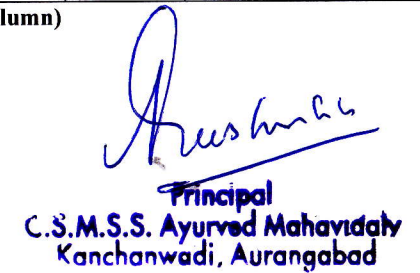 lumn)
Principal
C.S.M.S.S. Ayurved Mahavidaly
Kanchanwadi, Aurangabad